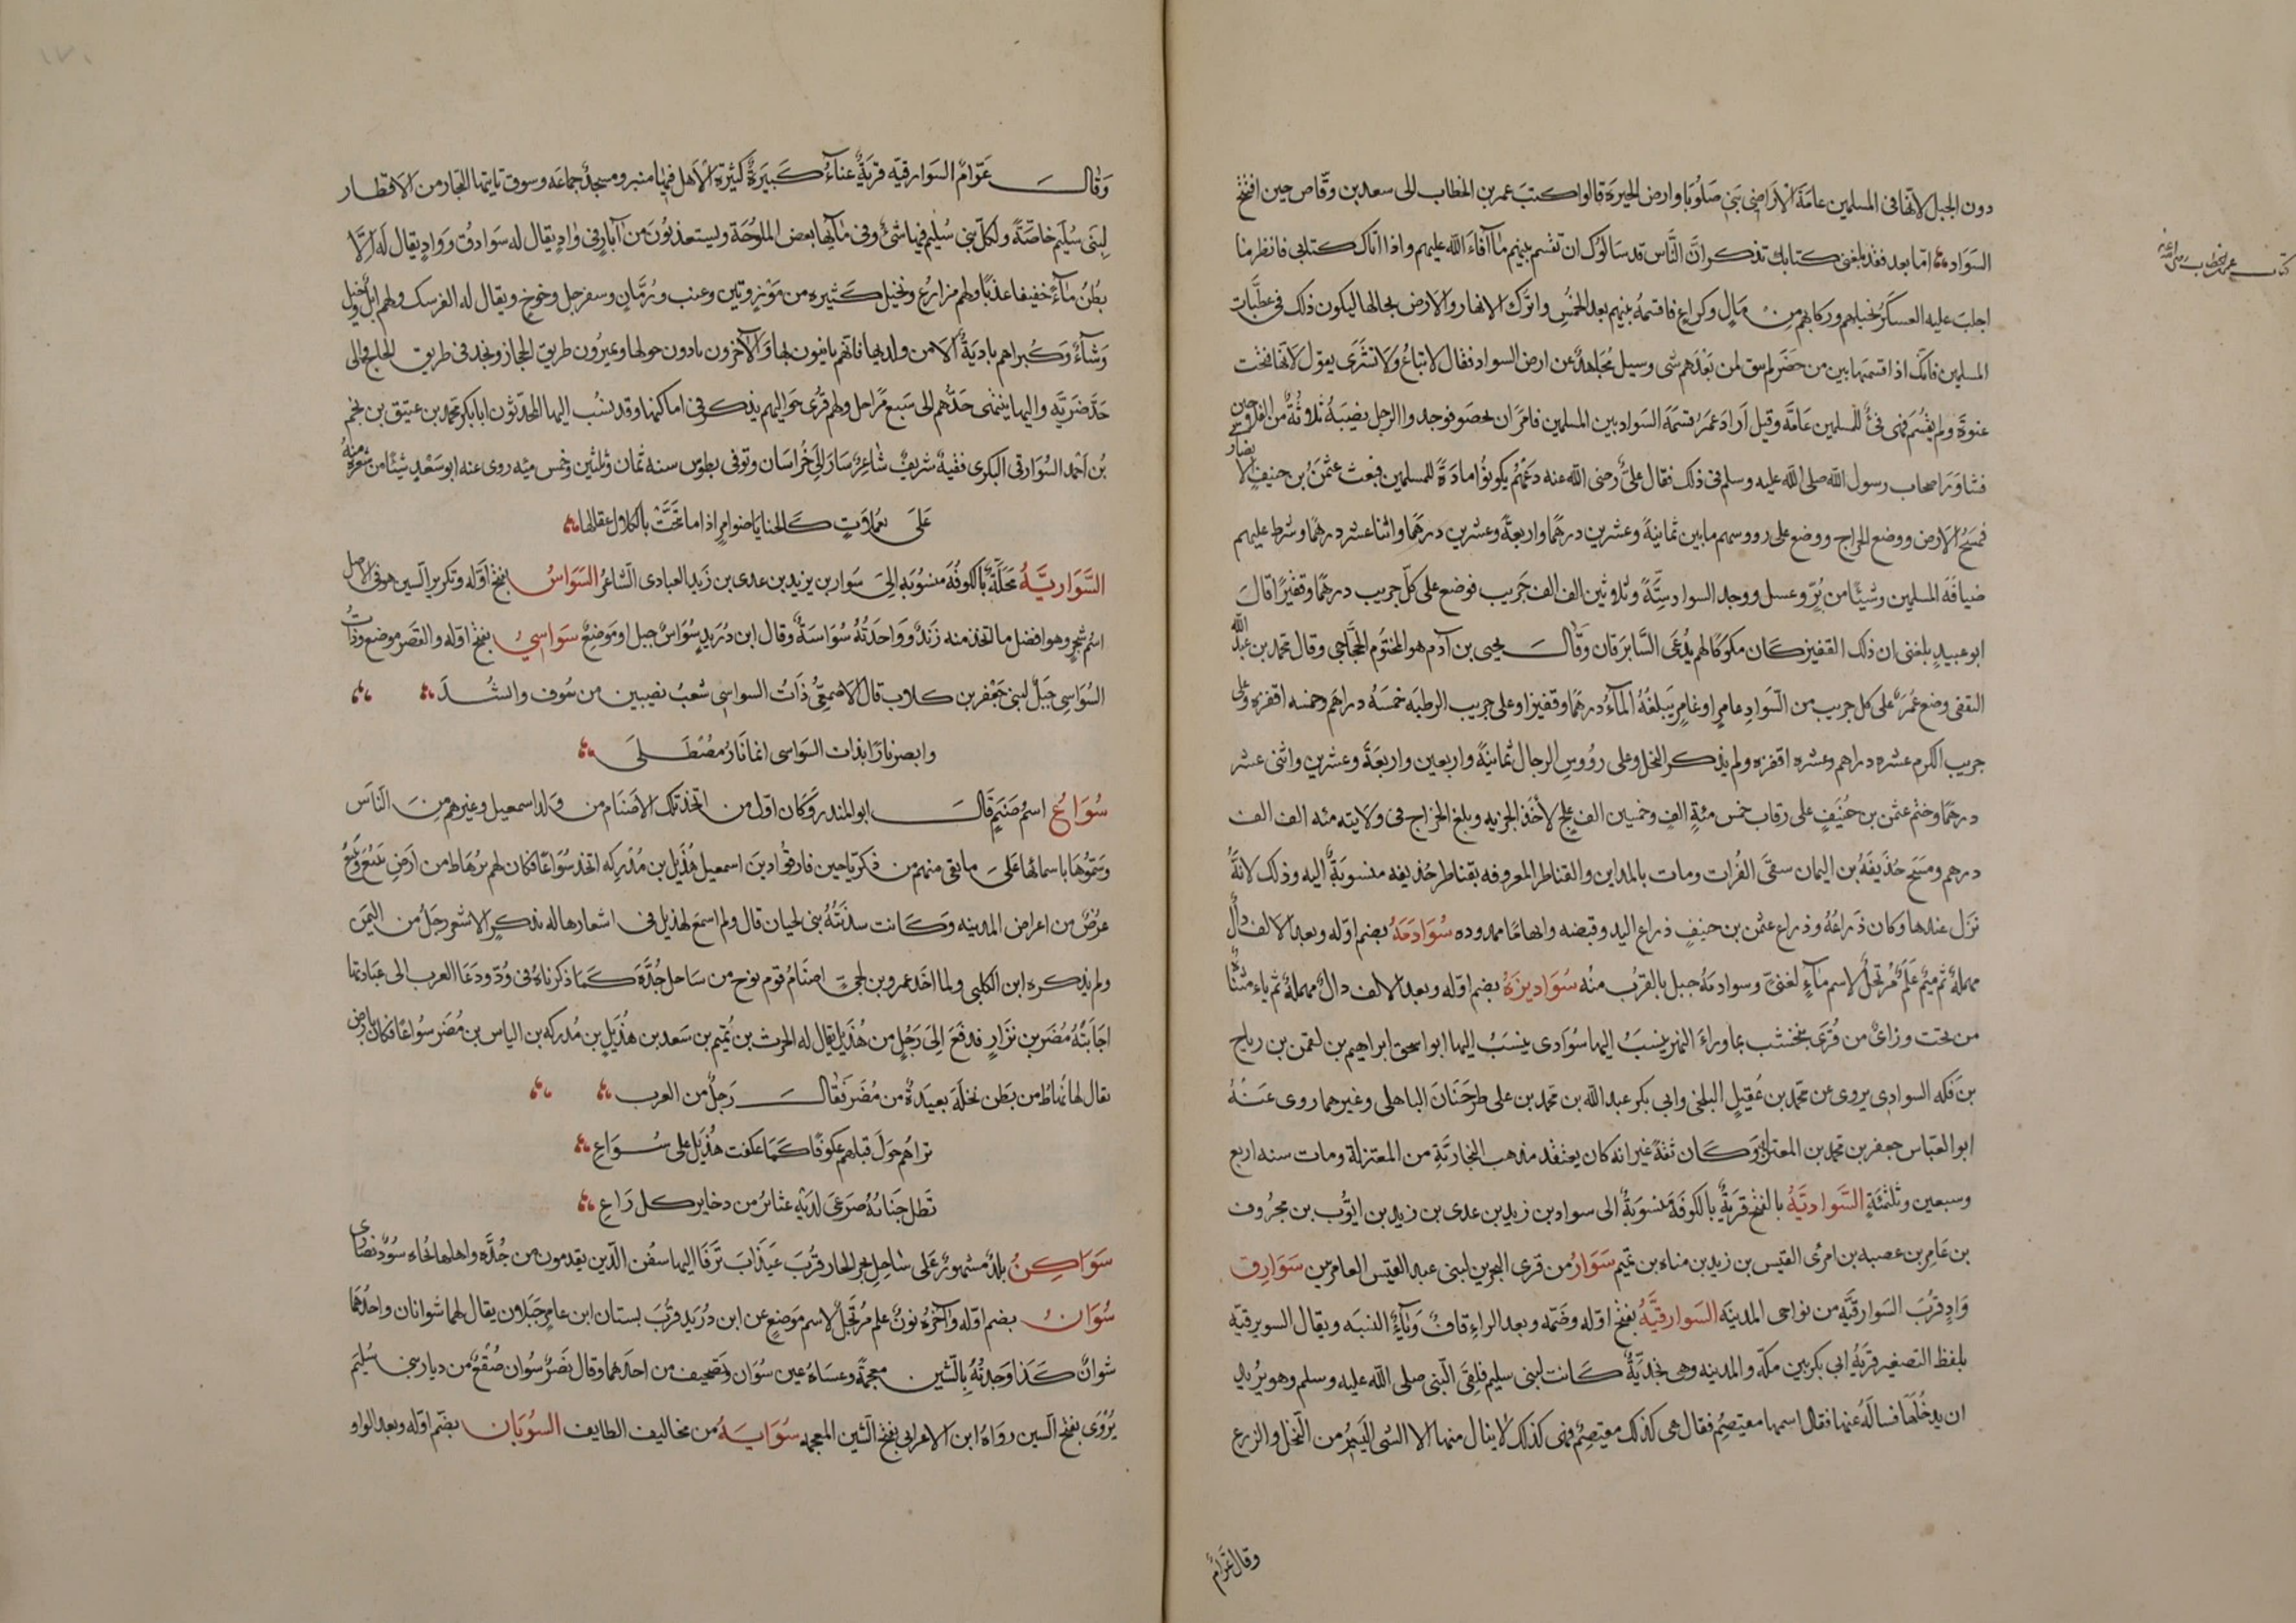 دون الجبل لانها فى المسلمين عامة الاراضى بنى صلوبا وارض الحيرة قالوا كتب عمر بن الخطاب الى سعد بن وقاص حين افتتح
كتاب عمر بن الخطاب رضى الله عنه
السواد اما بعد فقد بلغنى كتابك تذكر ان الناس قد سالوك ان تقسم بينهم ما آفاء الله عليهم واذا اتاك كتابى فانظر ما
اجلب عليه العسكر بخيلهم وركابهم من مال وكراع فاقسمه بينهم بعد الخمس واترك الانهار والارض بحالها ليكون ذلك فى عطيات
المسلمين فانك اذا قسمتها بين من حضر لم يبق لمن بعدهم شى وسيل مجاهد عن ارض السواد فقال لا تباع ولا تشترى يقول لانها فتحت
عنوة ولم تقسم فهى فئ للمسلمين عامة وقيل اراد عمر قسمة السواد بين المسلمين فامر ان يحصو فوجدوا الرجل يصيبه ثلاثة من الفلاحين
فشاور اصحاب رسول الله صلى الله عليه وسلم فى ذلك فقال على رضى الله عنه دعهم يكونوا مادة للمسلمين فبعث عثمن بن حنيف الانصارى
فمسح الارض ووضع الخراج ووضع على رووسهم ما بين ثمانية وعشرين درهما واربعة وعشرين درهما واثنا عشر درهما وشرط عليهم
ضيافة المسلمين وشيئا من بر وعسل ووجد السواد ستة وثلاثين الف الف جريب فوضع على كل جريب درهما وقفيزا قال
ابو عبيد بلغنى ان ذلك القفيز كان مكوكا لهم يدعى السابرقان وقال يحيى بن آدم هو المختوم الحجاجى وقال محمد بن عبد الله
الثقفى وضع عمر على كل جريب من السواد عامر او غامر يبلغه الماء درهما وقفيزا وعلى جريب الرطبه خمسة دراهم وخمسه اقفزه وعلى
جريب الكرم عشره دراهم وعشره اقفزه ولم يذكر النخل وعلى رؤوس الرجال ثمانية واربعين واربعة وعشرين واثنى عشر
درهما وختم عثمن بن حنيف على رقاب خمس مئة الف وخمسين الف علج لاخذ الجزيه وبلغ الخراج فى ولايته مئه الف الف
درهم ومسح حذيفة بن اليمان سقى الفرات ومات بالمداين والقناطر المعروفه بقناطر حذيفه منسوبة اليه وذلك لانه
نزل عندها وكان ذراعه وذراع عثمن بن حنيف ذراع اليد وقبضه وابهاما ممدوده سوادمة بضم اوله وبعد الالف دال
مهملة ثم ميم علم مرتجل لاسم ماء لغنى وسوادمة جبل بالقرب منه سواديزة بضم اوله وبعد الالف دال مهملة ثم ياء مثناة
من تحت وزاى من قرى نخشب بما وراء النهر ينسب اليها سوادى ينسب اليها ابو اسحق ابراهيم بن لقمن بن رباح
بن فكه السوادى يروى عن محمد بن عقيل البلخى وابى بكر عبد الله بن محمد بن على طرخان الباهلى وغيرهما روى عنه
ابو العباس جعفر بن محمد بن المعتز وكان ثقة غير انه كان يعتقد مذهب النجارية من المعتزلة ومات سنه اربع
وسبعين وثلثمئة السوادية بالفتح قرية بالكوفة منسوبة الى سواد بن زيد بن عدى بن زيد بن ايوب بن مجروف
بن عامر بن عصيه بن امرئ القيس بن زيد بن مناه بن تميم سوار من قرى البحرين لبنى عبد القيس العامريين سوارق
واد قرب السوارقية من نواحى المدينة السوارقية بفتح اوله وضمه وبعد الراء قاف وياء النسبه ويقال السويرقية
بلفظ التصغير قرية ابى بكر بين مكة والمدينه وهى نجدية كانت لبنى سليم فلقى النبى صلى الله عليه وسلم وهو يريد
ان يدخلها فساله عنها فقال اسمها معيتصم فقال هى كذلك معيتصم فهى كذلك لا ينال منها الا الشى اليسير من النخل والزرع
وقال عرام
وقال عرام السوارقيه قرية غناء كبيرة كثيرة الاهل فيها منبر ومسجد جماعه وسوق تايتها التجار من الاقطار
لبنى سليم خاصة ولكل بنى سليم فيها شئ وفى مآئها بعض الملوحة ويستعذبون من آبار فى واد يقال له سوارق وواد يقال له الا
بطن مآء خفيفا عذبا ولهم مزارع ونخيل كثيره من موز وتين وعنب ورمان وسفرجل وخوخ ويقال له الفرسك ولهم ابل وخيل
وشاء وكبراهم بادية الا من ولد بها فانهم ثابتون بها والآخرون بادون حولها ويميرون طريق الحجاز ونجد فى طريق الحاج والى
حد ضرية واليها ينتهى حدهم الى سبع مراحل ولهم قرى حواليهم يذكر فى اماكنها وقد ينسب اليها المحدثون ابا بكر محمد بن عتيق بن نجم
بن احمد السوارقى البكرى فقيه شريف شاعر سار الى خراسان وتوفى بطوس سنه ثمان وثلثين وخمس مئه روى عنه ابو سعد شيئا من شعره منه
على يعملات كالحنايا ضوامر اذا ما تنحت بالكلال عقالها
السوارية محلة بالكوفة منسوبة الى سوار بن يزيد بن عدى بن زيد العبادى الشاعر السواس بفتح اوله وتكرير السين هو فى الاصل
اسم شجر وهو افضل ما اتخذ منه زند وواحدته سواسة وقال ابن دريد سواس جبل او موضع سواسى بفتح اوله والقصر موضع وذات
السواسى جبل لبنى جعفر بن كلاب قال الاصمعى ذات السواسى شعب نصيبين من سوف والشد
وابصر نارا بذات السواسى انها نار مصطلى
سواع اسم صنم قال ابو المنذر وكان اول من اتخذ تلك الاصنام من ولد اسمعيل وغيرهم من الناس
وسموها باسمائها على ما بقى منهم من ذكرياحين فارقوا دين اسمعيل هذيل بن مدركه اتخذ سواعا فكان لهم برهاط من ارض ينبع وينبع
عرض من اعراض المدينه وكانت سدنته بنى لحيان قال ولم اسمع لهذيل فى اشعارها له ذكر الا شعر رجل من اليمن
ولم يذكره ابن الكلبى ولما اخذ عمرو بن لحى اصنام قوم نوح من ساحل جدة كما ذكرناه فى ود ودعا العرب الى عبادتها
اجابته مضر بن نزار فدفع الى رجل من هذيل يقال له الحرث بن تميم بن سعد بن هذيل بن مدركه بن الياس بن مضر سواعا فكان بارض
يقال لها رهاط من بطن نخلة يعبده من مضر فقال رجل من العرب
تراهم حول قبلهم عكوفا كما عكفت هذيل على سواع
تظل جنابه صرعى لديه عتائر من ذخاير كل راع
سواكن بلد مشهور على ساحل بحر الجار قرب عيذاب ترفا اليها سفن الذين يقدمون من جدة واهلها بجاه سود نصارى
سوان بضم اوله وآخره نون علم مرتجل لاسم موضع عن ابن دريد قرب بستان ابن عامر جبلان يقال لهما شوانان واحدهما
شوان كذا وجدته بالشين معجمة وعساه عين سوان وتصحيف من احدهما وقال نصر سوان صقع من ديار بنى سليم
يروى بفتح السين رواه ابن الاعرابى بفتح الشين المعجمه سواية من مخاليف الطايف السوبان بضم اوله وبعد الواو